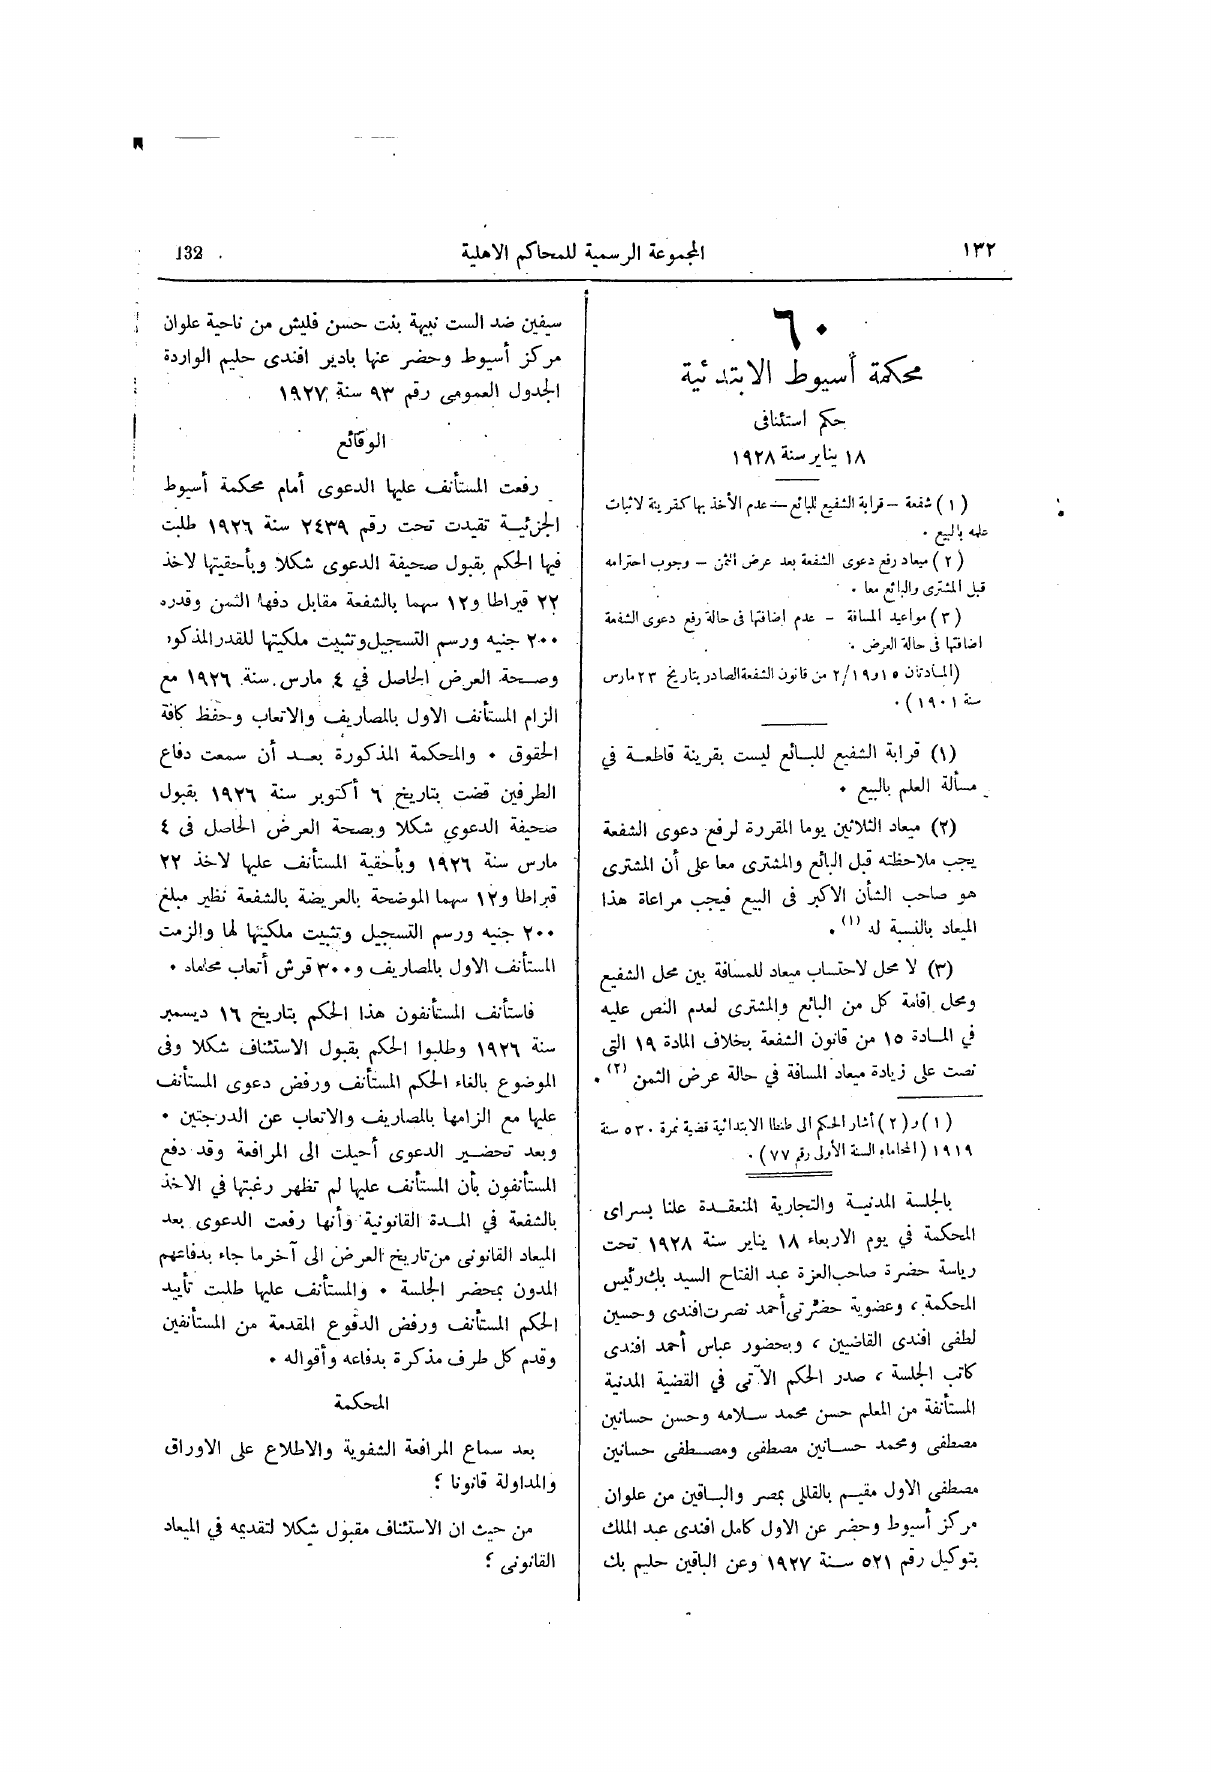 ١٣٢
المجموعة الرسمية للمحاكم الاهلية
132
٦٠
محكمة أسيوط الابتدئية
حكم استئنافى
١٨ يناير سنة ١٩٢٨
(١) شفعة – قرابة الشفيع للبائع – عدم الأخذ بها كقرينة لاثبات
علمه بالبيع .
(٢) ميعاد رفع دعوى الشفعة بعد عرض الثمن – وجوب احترامه
قبل المشترى والبائع معا .
(٣) مواعيد المسافة – عدم إضافتها فى حالة رفع دعوى الشفعة
اضافتها فى حالة العرض .
(المادتان ١٥ و١٩/٢ من قانون الشفعة الصادر بتاريخ ٢٣ مارس
سنة ١٩٠١) .
(١) قرابة الشفيع للبائع ليست بقرينة قاطعة في
مسألة العلم بالبيع .
(٢) ميعاد الثلاثين يوما المقررة لرفع دعوى الشفعة
يجب ملاحظته قبل البائع والمشترى معا على أن المشترى
هو صاحب الشأن الاكبر فى البيع فيجب مراعاة هذا
الميعاد بالنسبة له (١) .
(٣) لا محل لاحتساب ميعاد للمسافة بين محل الشفيع
ومحل اقامة كل من البائع والمشترى لعدم النص عليه
في المادة ١٥ من قانون الشفعة بخلاف المادة ١٩ التى
نصت على زيادة ميعاد المسافة في حالة عرض الثمن (٢) .
(١) و(٢) أشار الحكم الى طنطا الابتدائية قضية نمرة ٥٣٠ سنة
١٩١٩ (المحاماه السنة الأولى رقم ٧٧) .
بالجلسة المدنية والتجارية المنعقدة علنا بسراى
المحكمة في يوم الاربعاء ١٨ يناير سنة ١٩٢٨ تحت
رياسة حضرة صاحب العزة عبد الفتاح السيد بك رئيس
المحكمة ، وعضوية حضرتى أحمد نصرت افندى وحسين
لطفى افندى القاضيين ، وبحضور عباس أحمد افندى
كاتب الجلسة ، صدر الحكم الآتى في القضية المدنية
المستأنفة من المعلم حسن محمد سلامه وحسن حسانين
مصطفى ومحمد حسانين مصطفى ومصطفى حسانين
مصطفى الاول مقيم بالقللى بمصر والباقين من علوان
مركز أسيوط وحضر عن الاول كامل افندى عبد الملك
بتوكيل رقم ٥٢١ سنة ١٩٢٧ وعن الباقين حليم بك
سيفين ضد الست نبيهة بنت حسن فليش من ناحية علوان
مركز أسيوط وحضر عنها بادير افندى حليم الواردة
الجدول العمومى رقم ٩٣ سنة ١٩٢٧
الوقائع
رفعت المستأنف عليها الدعوى أمام محكمة أسيوط
الجزئية تقيدت تحت رقم ٢٤٣٩ سنة ١٩٢٦ طلبت
فيها الحكم بقبول صحيفة الدعوى شكلا وبأحقيتها لاخذ
٢٢ قيراطا و١٢ سهما بالشفعة مقابل دفها الثمن وقدره
٢٠٠ جنيه ورسم التسجيل وتثبيت ملكيتها للقدر المذكور
وصحة العرض الحاصل في ٤ مارس سنة ١٩٢٦ مع
الزام المستأنف الاول بالمصاريف والاتعاب وحفظ كافة
الحقوق . والمحكمة المذكورة بعد أن سمعت دفاع
الطرفين قضت بتاريخ ٦ أكتوبر سنة ١٩٢٦ بقبول
صحيفة الدعوي شكلا وبصحة العرض الحاصل فى ٤
مارس سنة ١٩٢٦ وبأحقية المستأنف عليها لاخذ ٢٢
قيراطا و١٢ سهما الموضحة بالعريضة بالشفعة نظير مبلغ
٢٠٠ جنيه ورسم التسجيل وتثبيت ملكيتها لها والزمت
المستأنف الاول بالمصاريف و٣٠٠ قرش أتعاب محاماه .
فاستأنف المستأنفون هذا الحكم بتاريخ ١٦ ديسمبر
سنة ١٩٢٦ وطلبوا الحكم بقبول الاستئناف شكلا وفى
الموضوع بالغاء الحكم المستأنف ورفض دعوى المستأنف
عليها مع الزامها بالمصاريف والاتعاب عن الدرجتين .
وبعد تحضير الدعوى أحيلت الى المرافعة وقد دفع
المستأنفون بأن المستأنف عليها لم تظهر رغبتها في الاخذ
بالشفعة في المدة القانونية وأنها رفعت الدعوى بعد
الميعاد القانونى من تاريخ العرض الى آخر ما جاء بدفاعهم
المدون بمحضر الجلسة . والمستأنف عليها طلبت تأييد
الحكم المستأنف ورفض الدفوع المقدمة من المستأنفين
وقدم كل طرف مذكرة بدفاعه وأقواله .
المحكمة
بعد سماع المرافعة الشفوية والاطلاع على الاوراق
والمداولة قانونا ؛
من حيث ان الاستئناف مقبول شكلا لتقديمه في الميعاد
القانونى ؛